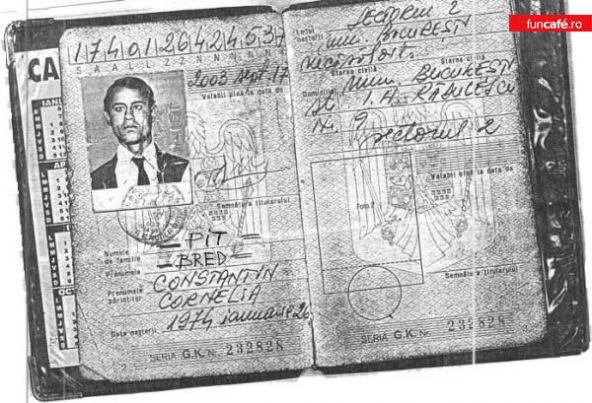 funcafé.ro
CA
1740126424537
S A A L L Z Z N N N N N
2003 sept. 17
Valabil pînă la data de
Semnătura titularului
Numele
de familie
PIT
Prenumele
BRED
Prenumele
părinților
CONSTANTIN
CORNELIA
Data nașterii
1974 ianuarie 26
SERIA G.K. Nr. 232828
SECTORUL 2
Locul
nașterii
mun. BUCUREȘTI
necăsătorit.
Starea civilă
Starea civilă
Domiciliul
Mun. BUCUREȘTI
I. H. RĂDULESCU
Nr. 9
sectorul 2
Valabil pînă la data de
Foto 2
Semnătura titularului
SERIA G.K. Nr. 232828